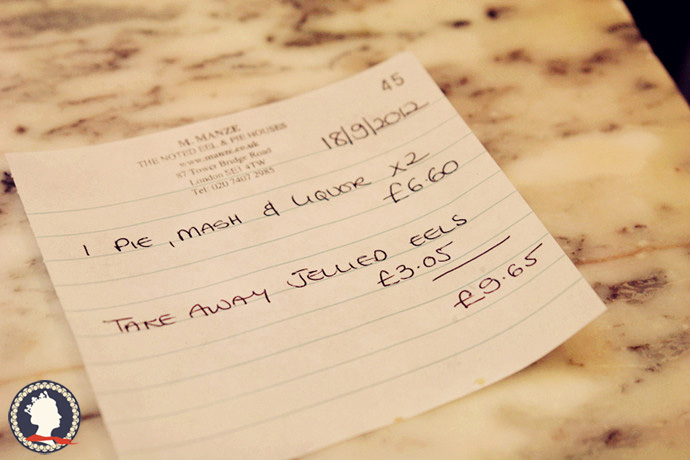 45
M. MANZE
THE NOTED EEL & PIE HOUSES
www.manze.co.uk
87 Tower Bridge Road
London SE1 4TW
Tel: 020 7407 2985
18/9/2012
1 PIE, MASH & LIQUOR x2
£6.60
TAKE AWAY JELLIED EELS
£3.05
£9.65